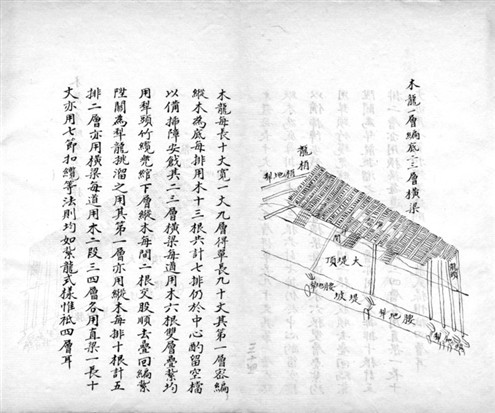 木龍一層編底二三層橫梁
龍梢
梢地犁
關
大堤頂
堤坡
腰地犁
腰地犁
龍頭
木龍每長十丈寬一丈九層得單長九十丈其第一層密編
縱木為底每排用木十三根共計七排仍於中心酌留空檔
以備掃障安戧其二三層橫梁每道用木六根雙層疊繫均
用犁頭竹纜兠綰下層縱木每間二根交股順去疊回編繫
陞關為犁龍挑溜之用其第一層亦用縱木每排十根計五
排二層亦用橫梁每道用木二段三四層各用直梁一長十
丈亦用七節扣纜等法則均如紮龍式樣惟祇四層耳